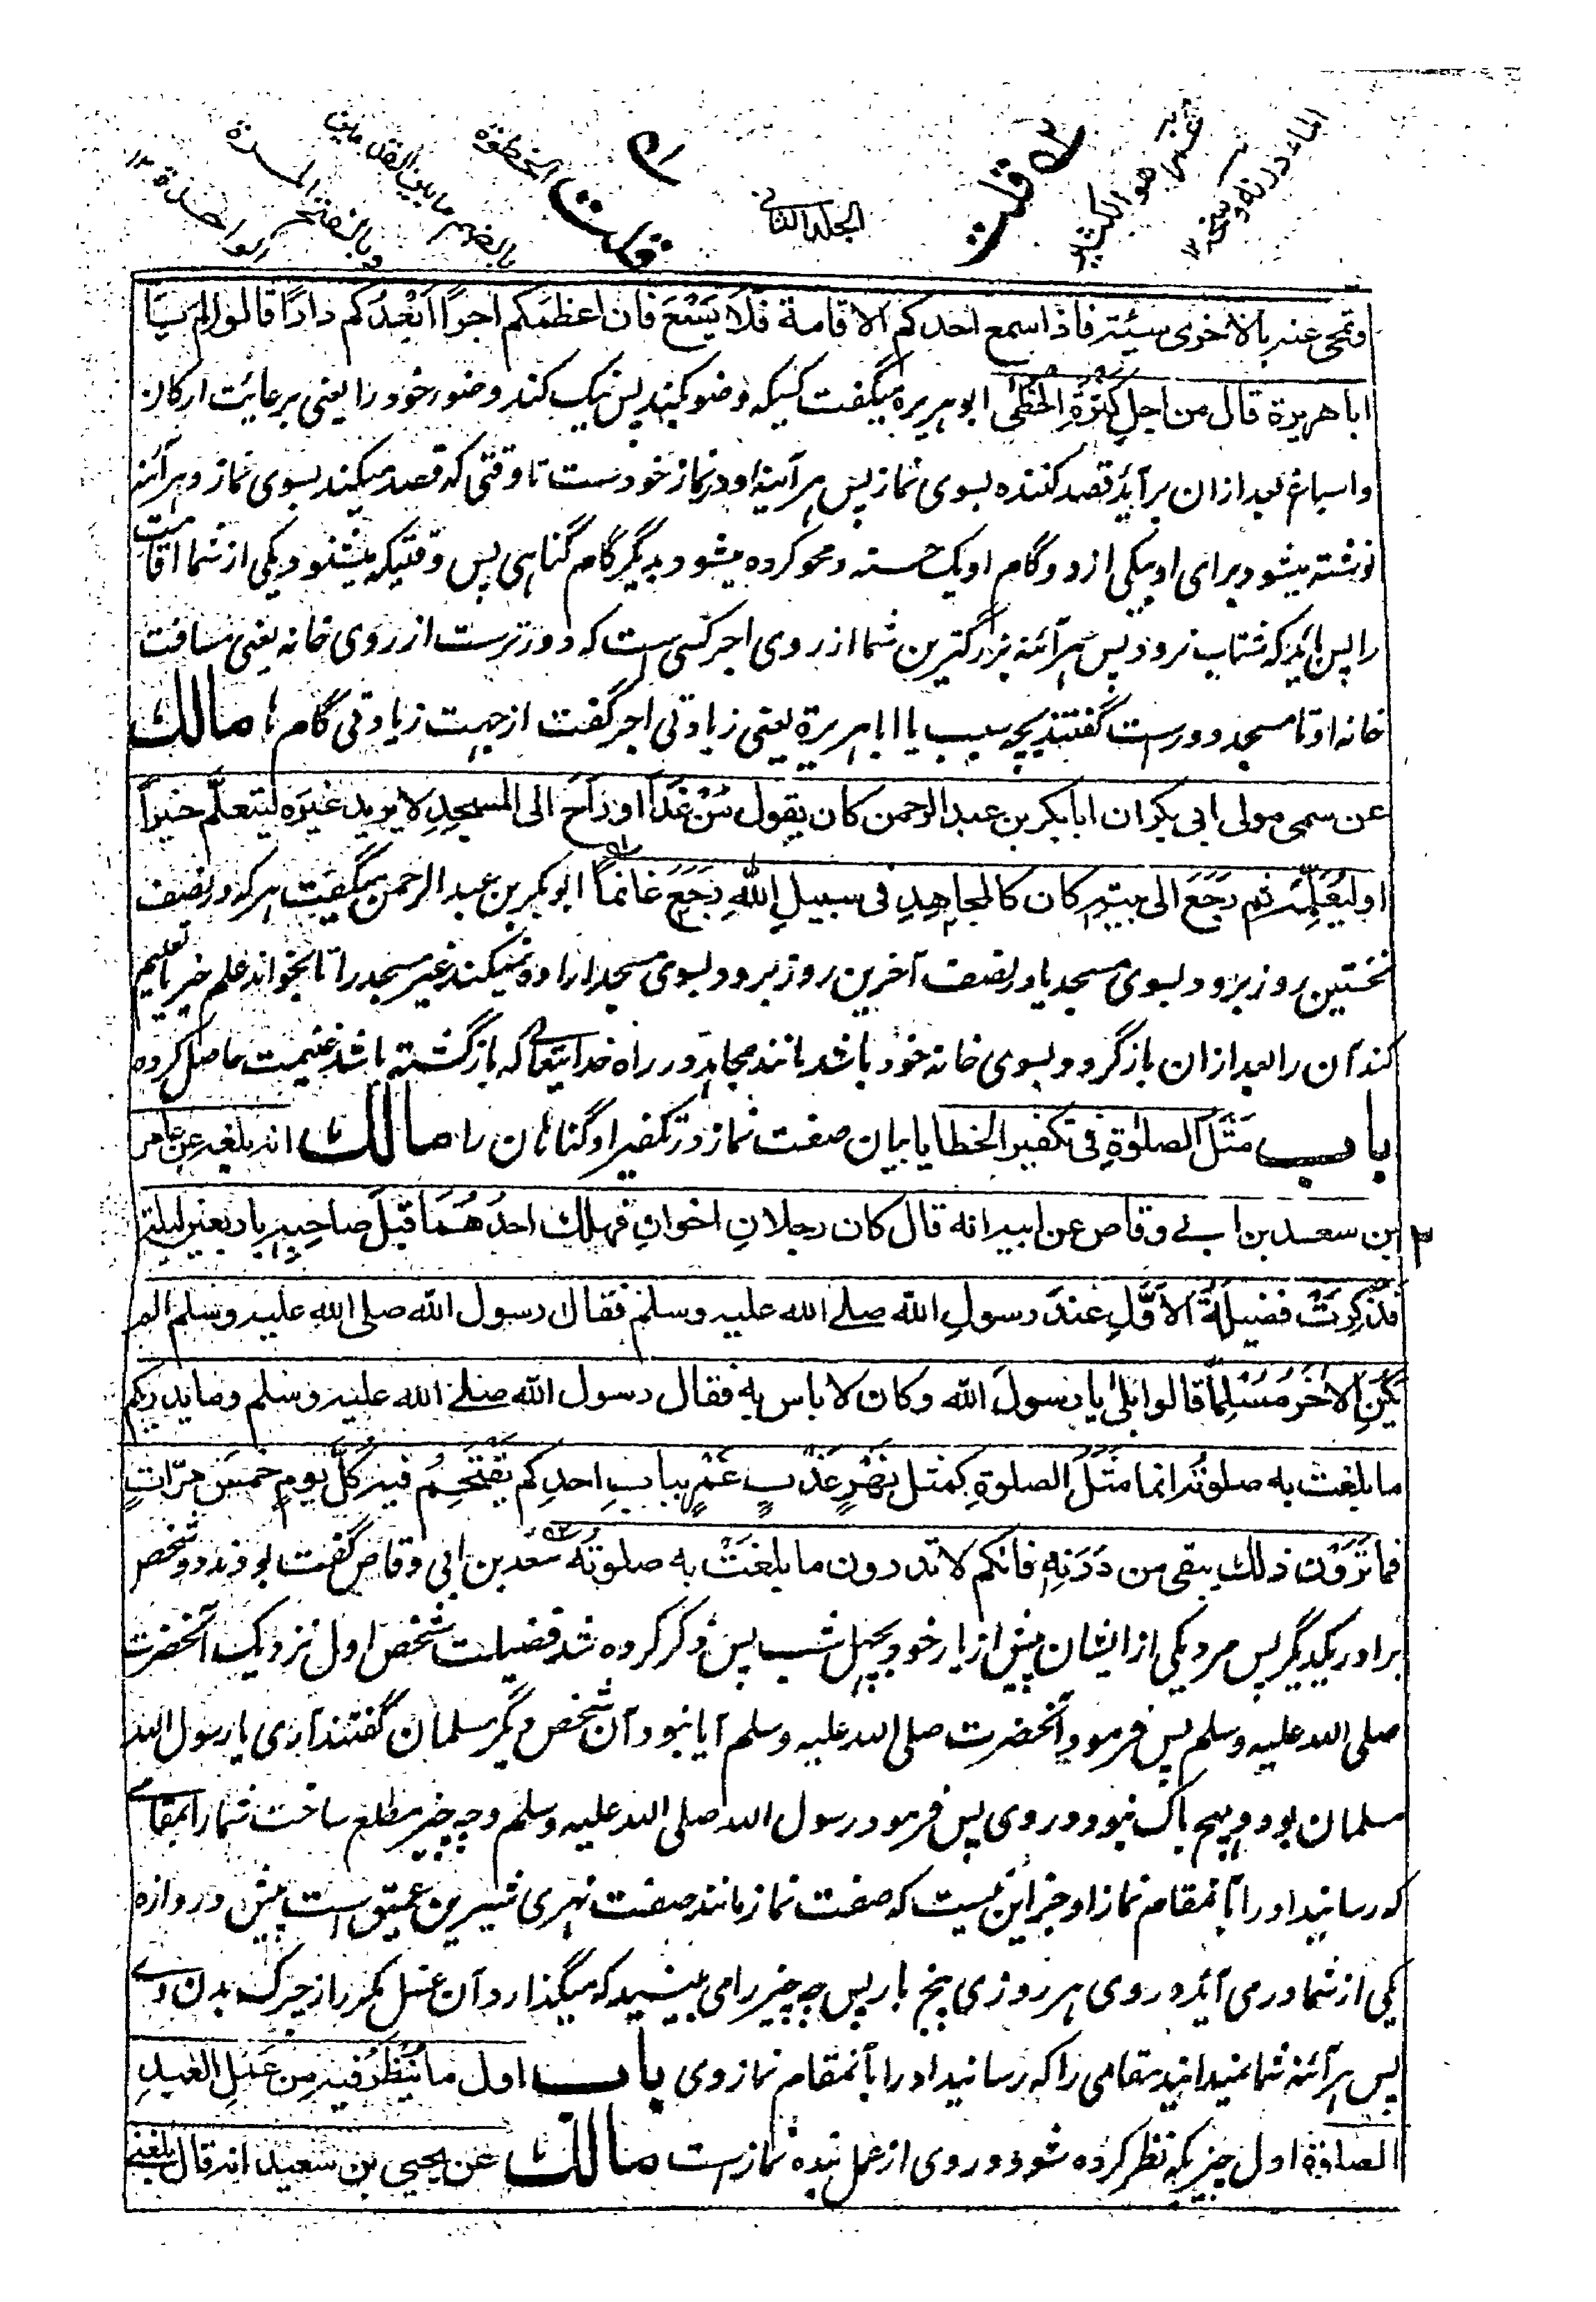 الجلد الثانی
وتمحی عنہ بالاخری سیئۃ فاذا سمع احدکم الاقامۃ فَلَا یَسْعَ فان اعظمَکم اجراً اَبْعَدُکم داراً قالوا لم یَا
ابا ھریرۃ قال من اجلِ کَثْرَۃِ الْخُطیٰ ابو ہریرۃ میگفت کسیکہ وضو کند پس نیک کند وضور خود را یعنی برعایت ارکان
واسباغ بعد ازان برآید قصد کنندہ بسوی نماز پس ہرآینہ او در نماز خودست تا وقتی کہ قصد میکند بسوی نماز وہرآئنہ
نوشتہ میشود برای او بیکی از دو گام او یک حسنہ ومحو کردہ میشود بدیگر گام گناہی پس وقتیکہ بشنود یکی از شما اقامت
را پس باید کہ شتاب نرود پس ہرآئنہ بزرگترین شما از روی اجر کسی ست کہ دورترست از روی خانہ یعنی مسافت
خانہ او تا مسجد دورست گفتند بچہ سبب یا ابا ہریرۃ یعنی زیادتی اجر گفت از جہت زیادتی گام ہا مالک
عن سمی مولی ابی بکر ان ابا بکر بن عبد الرحمن کان یقول مَنْ غَدَا او رَاحَ الی المسجِدِ لا یرید غیرَہ لیتعلَّم خیراً
او لیُعَلِّمَہ ثم رَجَعَ الی بیتہٖ کان کالمجاھِدِ فی سبیلِ اللّٰہِ رَجَعَ غانماً ابو بکر بن عبد الرحمن میگفت ہر کہ در نصف
نخستین روز برود بسوی مسجد یا در نصف آخرین روز برود بسوی مسجد ارادہ نمیکند غیر مسجد را تا بخواند علم خیر یا تعلیم
کند آن را بعد ازان بازگردد بسوی خانہ خود باشد مانند مجاہد در راہ خدایتعالے کہ بازگشتہ باشد غنیمت حاصل کردہ
باب مَثَلُ الصلوٰۃِ فی تکفیر الخطایا بیان صفت نماز در تکفیر او گناہان را مالک انہ بلغہ عن عامر
بن سعد بن ابے وقاص عن ابیہ انہ قال کان رجلانِ اخوانِ فھلک احدُھُمَا قبلَ صاحبِہٖ باربعین لیلۃ
فَذُکِرَتْ فضیلۃُ الاَوَّلِ عندَ رسولِ اللّٰہ صلے اللہ علیہ وسلم فقال رسول اللہ صلی اللہ علیہ وسلم الم
یَکُنِ الاٰخَرُ مُسْلِماً قالوا بلیٰ یا رسولَ اللہ وکان لا باس بہ فقال رسول اللہ صلے اللہ علیہ وسلم وما یدریکم
ما بلغت بہ صلوتُہ انما مَثَلُ الصلوۃِ کمثل نَھْرٍ عَذْبٍ غَمْرٍ ببابِ احدِکم یَقْتَحِمُ فیہ کلَّ یومٍ خمسَ مرّاتٍ
فما تَرَوْن ذلک یبقی من دَرَنِہٖ فانکم لا تدرون ما بلغَتْ بہ صلوتُہ سعد بن ابی وقاص گفت بودند دو شخص
برادر یکدیگر پس مرد یکی از ایشان پیش از یار خود بچہل شب پس ذکر کردہ شد فضیلت شخص اول نزدیک آنحضرت
صلی اللہ علیہ وسلم پس فرمود آنحضرت صلی اللہ علیہ وسلم آیا نبود آن شخص دیگر مسلمان گفتند آری یا رسول اللہ
مسلمان بود وہیچ باک نبود در وی پس فرمود رسول اللہ صلی اللہ علیہ وسلم وچہ چیز مطلع ساخت شما را بمقامے
کہ رسانید او را بآنمقام نماز او جز این نیست کہ صفت نماز مانند صفت نہری شیرین عمیق است پیش دروازہ
یکی از شما در می آید در وی ہر روزی پنج بار پس چہ چیز را می بینید کہ میگذارد آن غسل مکرر از چرک بدن وے
پس ہرآئنہ شما نمیدانید مقامی را کہ رسانید او را بآنمقام نماز وی باب اول ما یُنْظَرُ فیہ مِن عَمَلِ العبدِ
الصلوۃ اول چیزیکہ نظر کردہ شود در وی از عمل بندہ نمازست مالک عن یحیی بن سعید انہ قال بلغنی